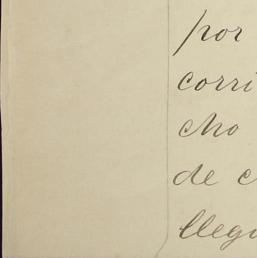 por
corri
cho
de c
llega